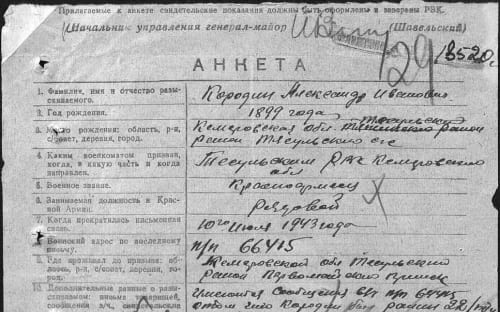 Прилагаемые к анкете свидетельские показания должны быть оформлены и заверены РВК.
Начальник управления генерал-майор (Шавельский)
29
АНКЕТА
1. Фамилия, имя и отчество разыскиваемого. Кародин Александр Иванович
2. Год рождения. 1899 года
3. Место рождения: область, р-н, с/совет, деревня, город. Кемеровская обл. Тисульский район
4. Каким военкоматом призван, когда, в какую часть и когда направлен. Тисульским РВК Кемеровской обл
5. Военное звание. Красноармеец
6. Занимаемая должность в Красной Армии. Рядовой
7. Когда прекратилась письменная связь. 10го Июля 1943 года
8. Воинский адрес по последнему письму. п/п 66415
9. Где проживал до призыва: область, р-н, с/совет, деревня, город. Кемеровская обл Тисульский район Первомайского прииск
10. Дополнительные данные о разыскиваемом: письма товарищей, сообщения в/ч, свидетельские Имеются Сообщения п/п
о том что Кародин был ранен 22/